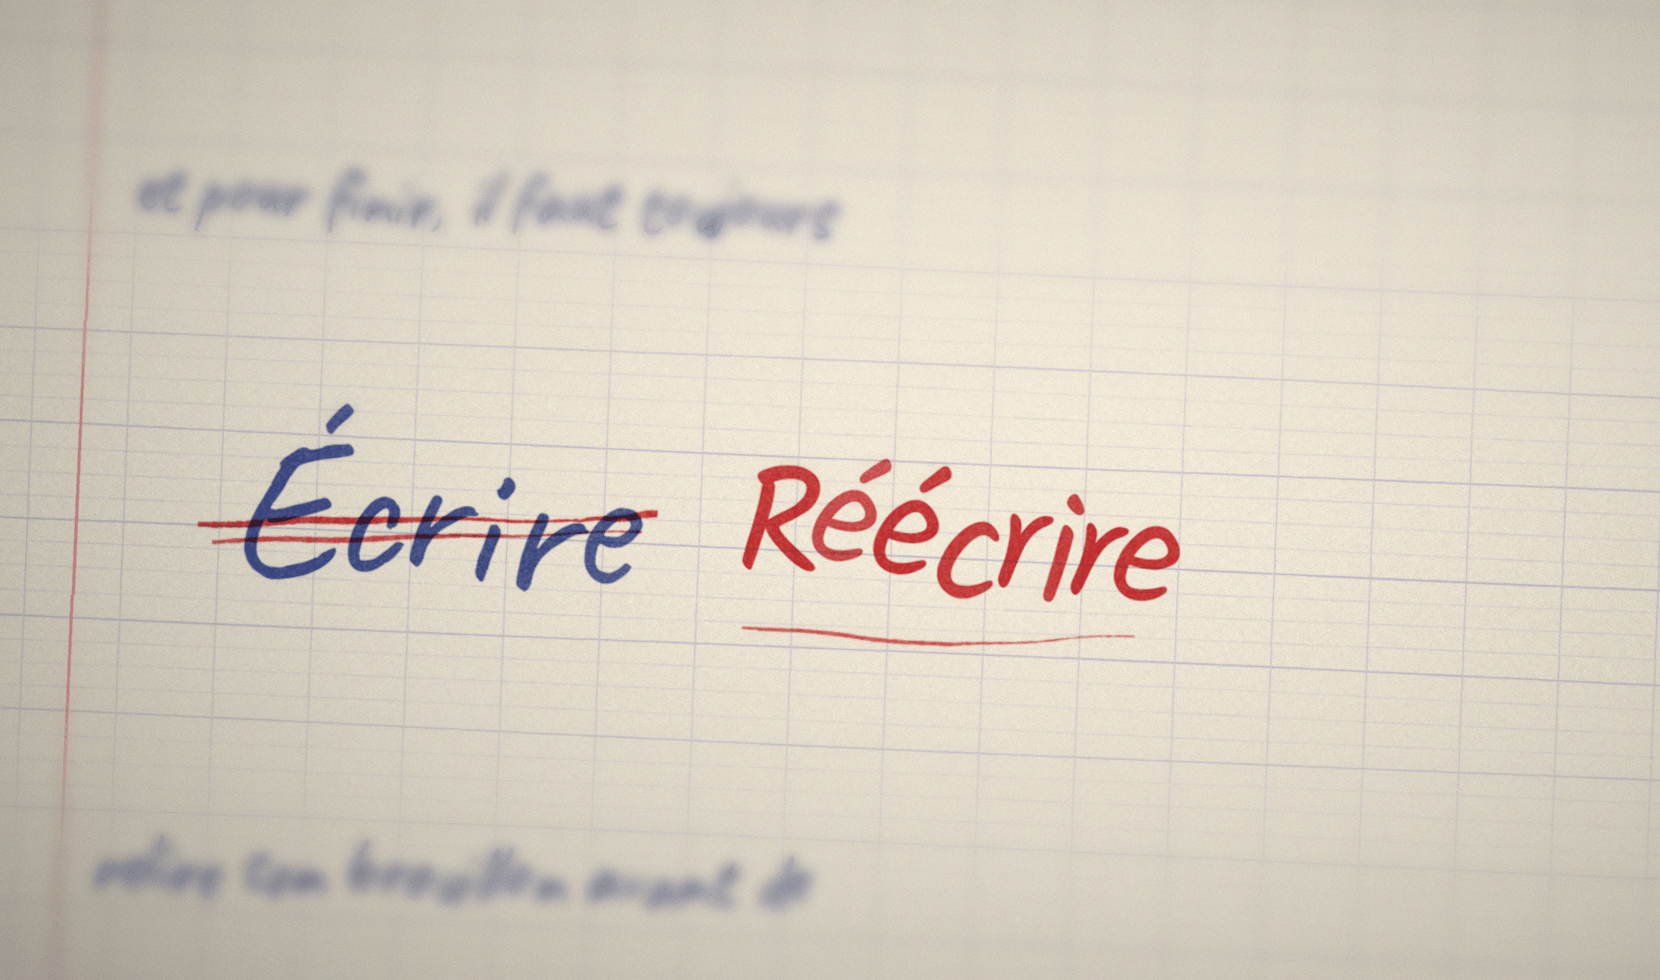 et pour finir, il faut toujours
Écrire Réécrire
relire ton brouillon avant de